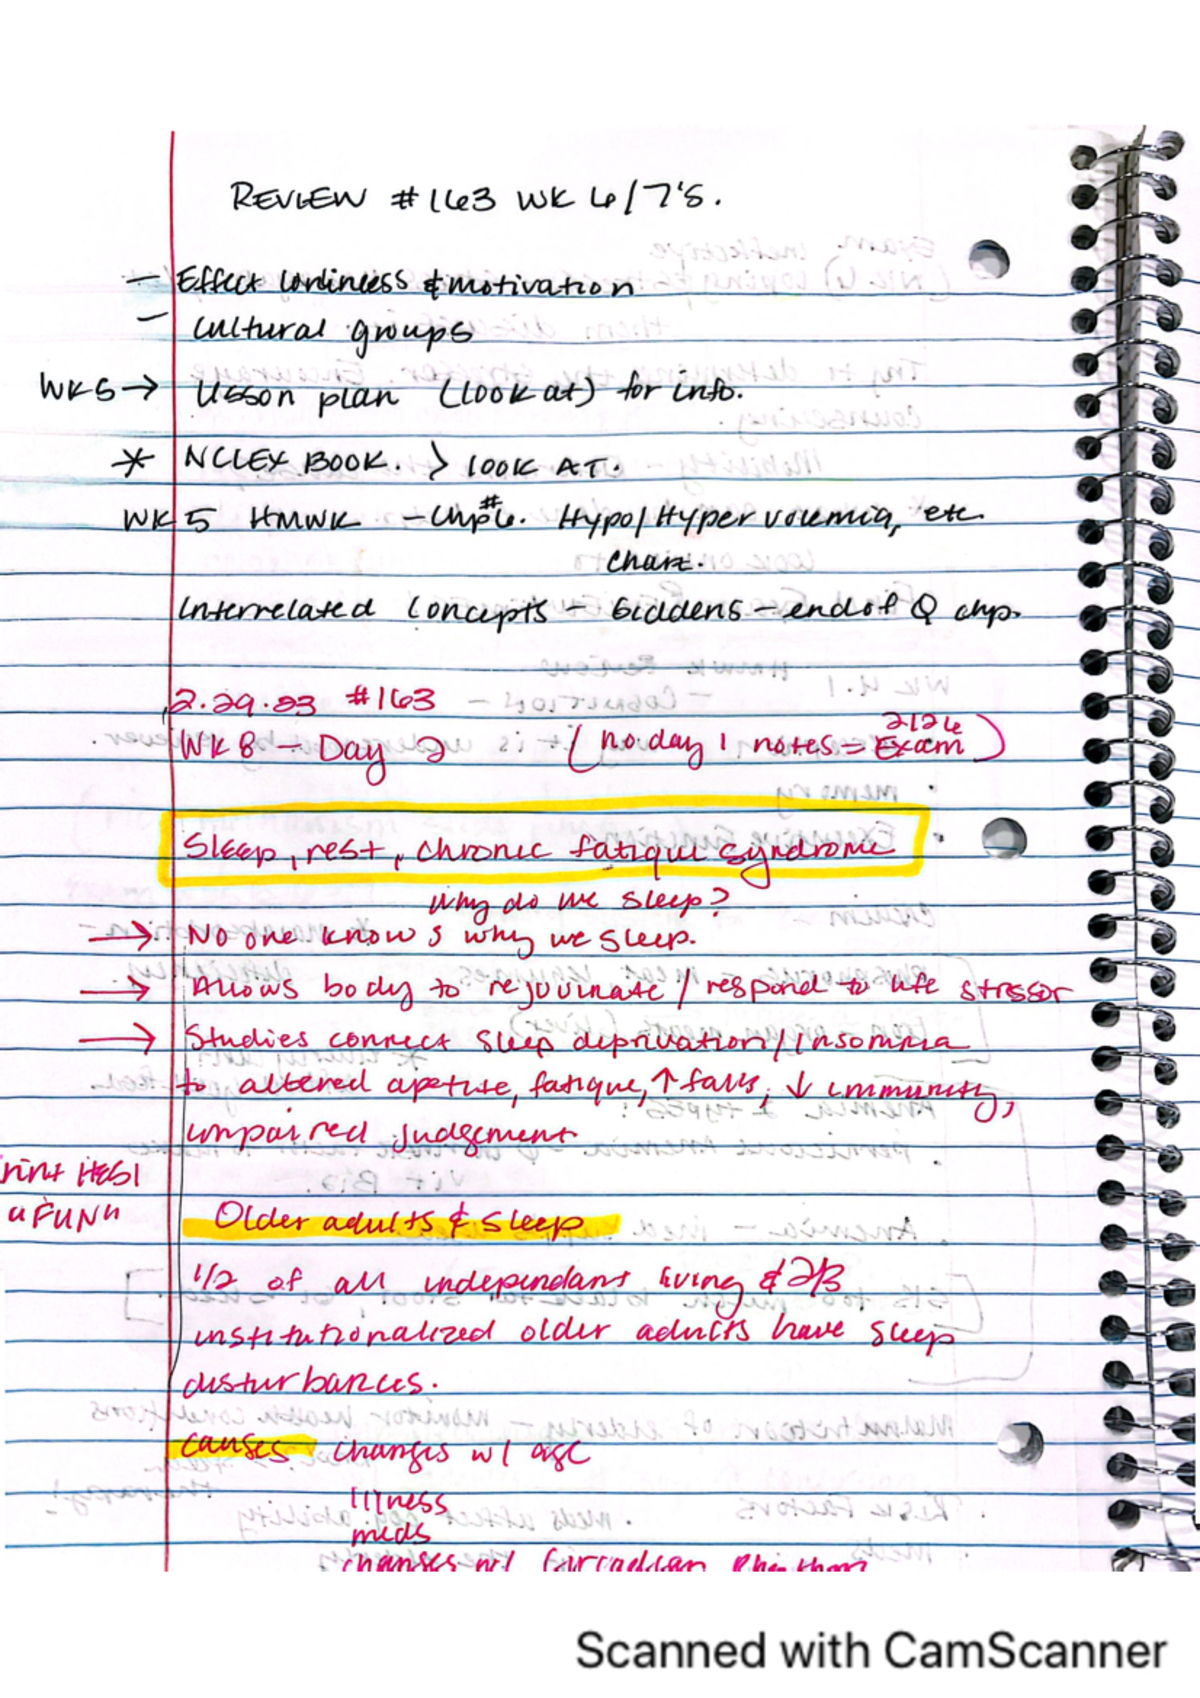 REVIEW #163 WK 6/7'S.
- Effect lonliness & motivation
- Cultural groups
WK5 → Lesson plan (look at) for info.
* NCLEX BOOK. > LOOK AT.
WK 5 HMWK - Chp #6. Hypo/Hyper volemia, etc.
Chart.
Interrelated Concepts - Giddens - end of Q chp.
2.29.23 #163
2126
WK 8 - Day 2 (no day 1 notes = Exam)
Sleep, rest, chronic fatigue syndrome
Why do we sleep?
→ No one knows why we sleep.
→ Allows body to rejuvinate / respond to life stressor
→ Studies connect sleep deprivation/insomnia
to altered apetite, fatigue, ↑ falls, ↓ immunity,
impaired judgement
print HESI
"FUN"
Older adults & sleep
1/2 of all independant living & 2/3
institutionalized older adults have sleep
disturbances.
causes changes w/ age
Illness
meds
changes w/ Circadian Rhythm
Scanned with CamScanner